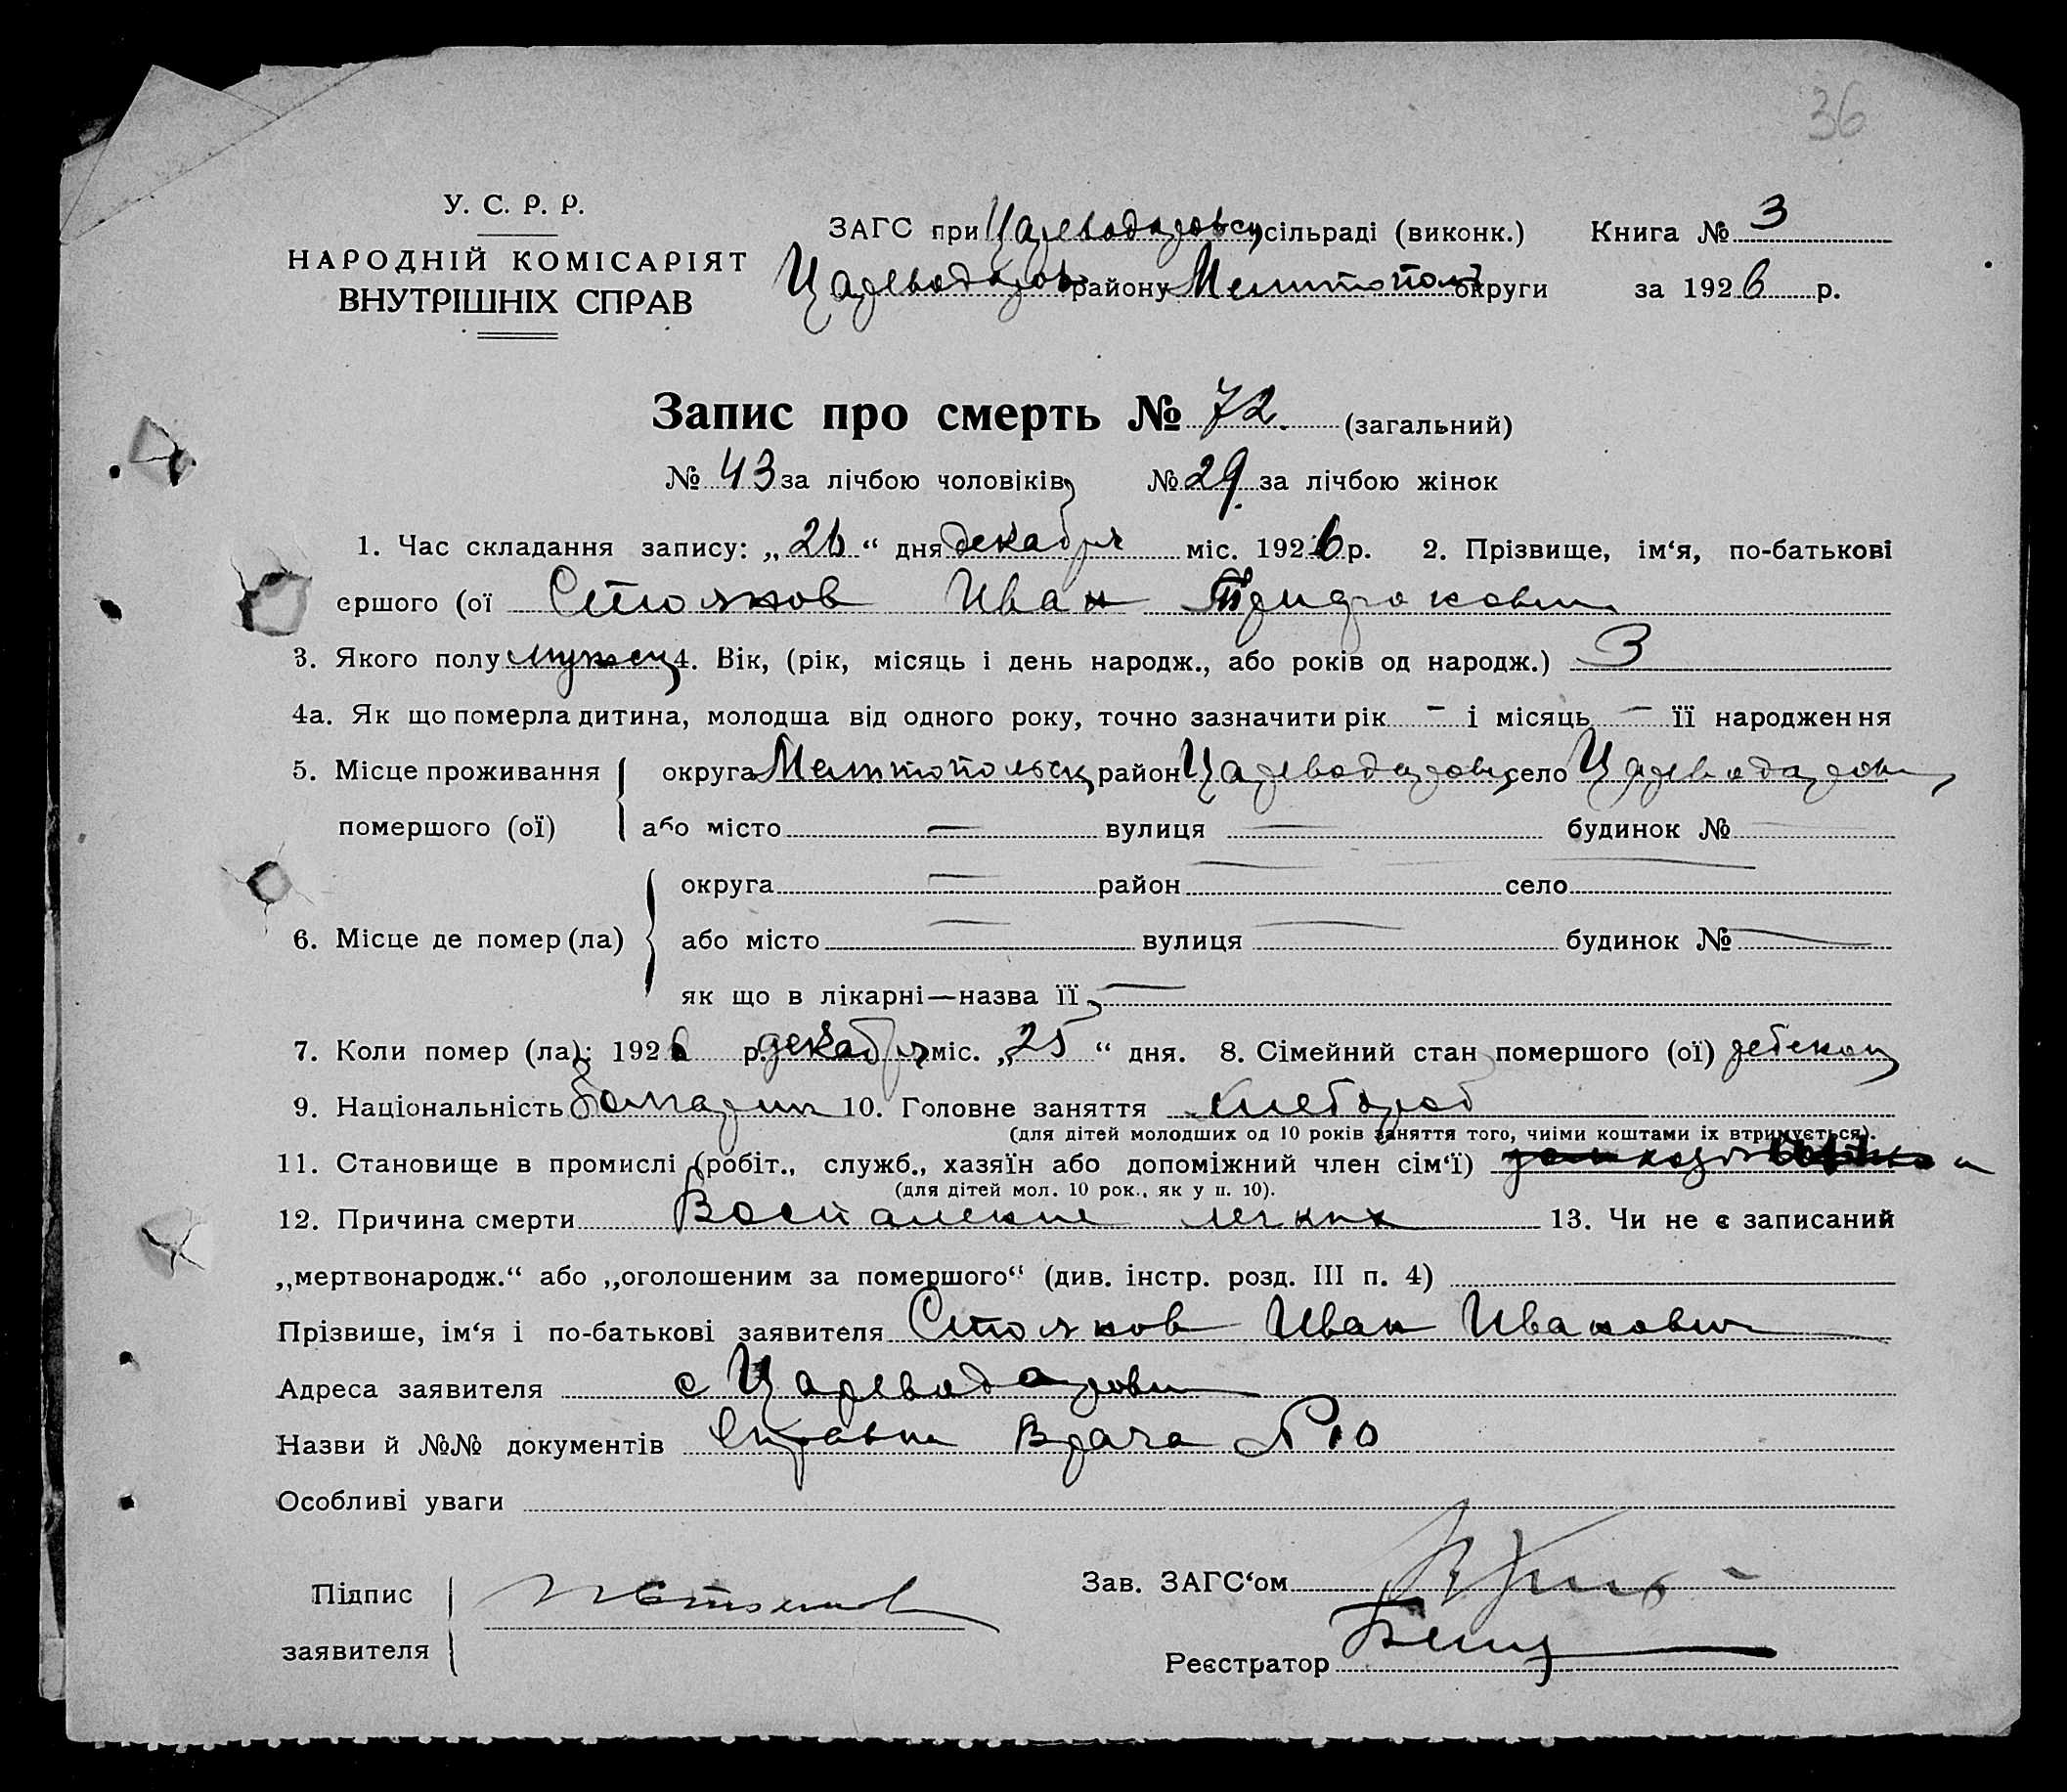 36
У. С. Р. Р.
НАРОДНІЙ КОМІСАРІЯТ
ВНУТРІШНІХ СПРАВ
ЗАГС при Цареводаровску сільраді (виконк.) Книга № 3
Цареводаров району Мелитополь округи за 1926 р.
Запис про смерть № 72. (загальний)
№ 43 за лічбою чоловіків № 29. за лічбою жінок
1. Час складання запису: „26“ дня декабря міс. 1926 р. 2. Прізвище, ім‘я, по-батькові
ершого (ої Стоянов Иван
3. Якого полу мужск 4. Вік, (рік, місяць і день народж., або років од народж.) 3
4а. Як що померла дитина, молодша від одного року, точно зазначити рік — і місяць — її народження
5. Місце проживання округа Мелитопольск район Цареводаровск село Цареводаровк
помершого (ої) або місто — вулиця — будинок № —
округа — район — село —
6. Місце де помер (ла) або місто — вулиця — будинок № —
як що в лікарні—назва її —
7. Коли помер (ла): 1926 р. декабря міс. „25“ дня. 8. Сімейний стан помершого (ої)
9. Національність Болгарин 10. Головне заняття хлебороб
(для дітей молодших од 10 років заняття того, чиїми коштами їх втримується).
11. Становище в промислі (робіт., служб., хазяїн або допоміжний член сім‘ї)
(для дітей мол. 10 рок., як у п. 10).
12. Причина смерти Воспаление легких 13. Чи не є записаний
„мертвонародж.“ або „оголошеним за помершого“ (див. інстр. розд. III п. 4)
Прізвише, ім‘я і по-батькові заявителя Стоянов Иван Иванович
Адреса заявителя с Цареводаровк
Назви й №№ документів Справка Врача № 10
Особливі уваги
Підпис
заявителя
Зав. ЗАГС‘ом
Реєстратор